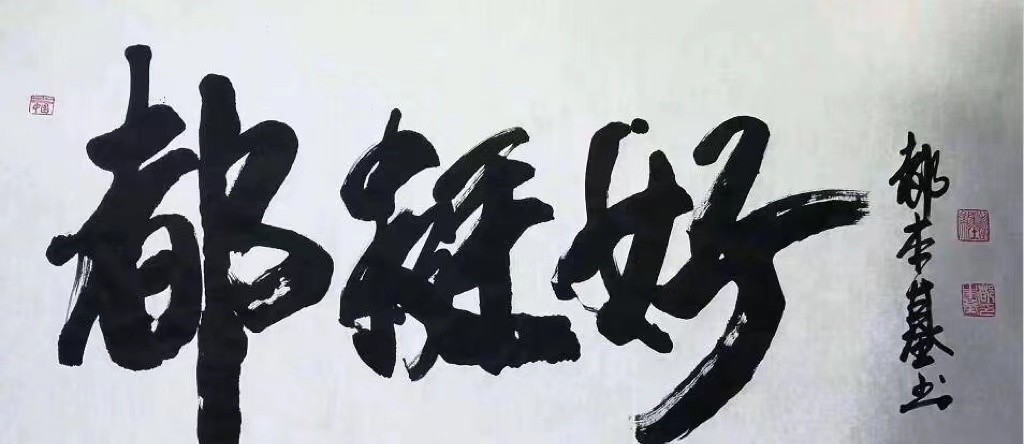 都挺好
都本基书